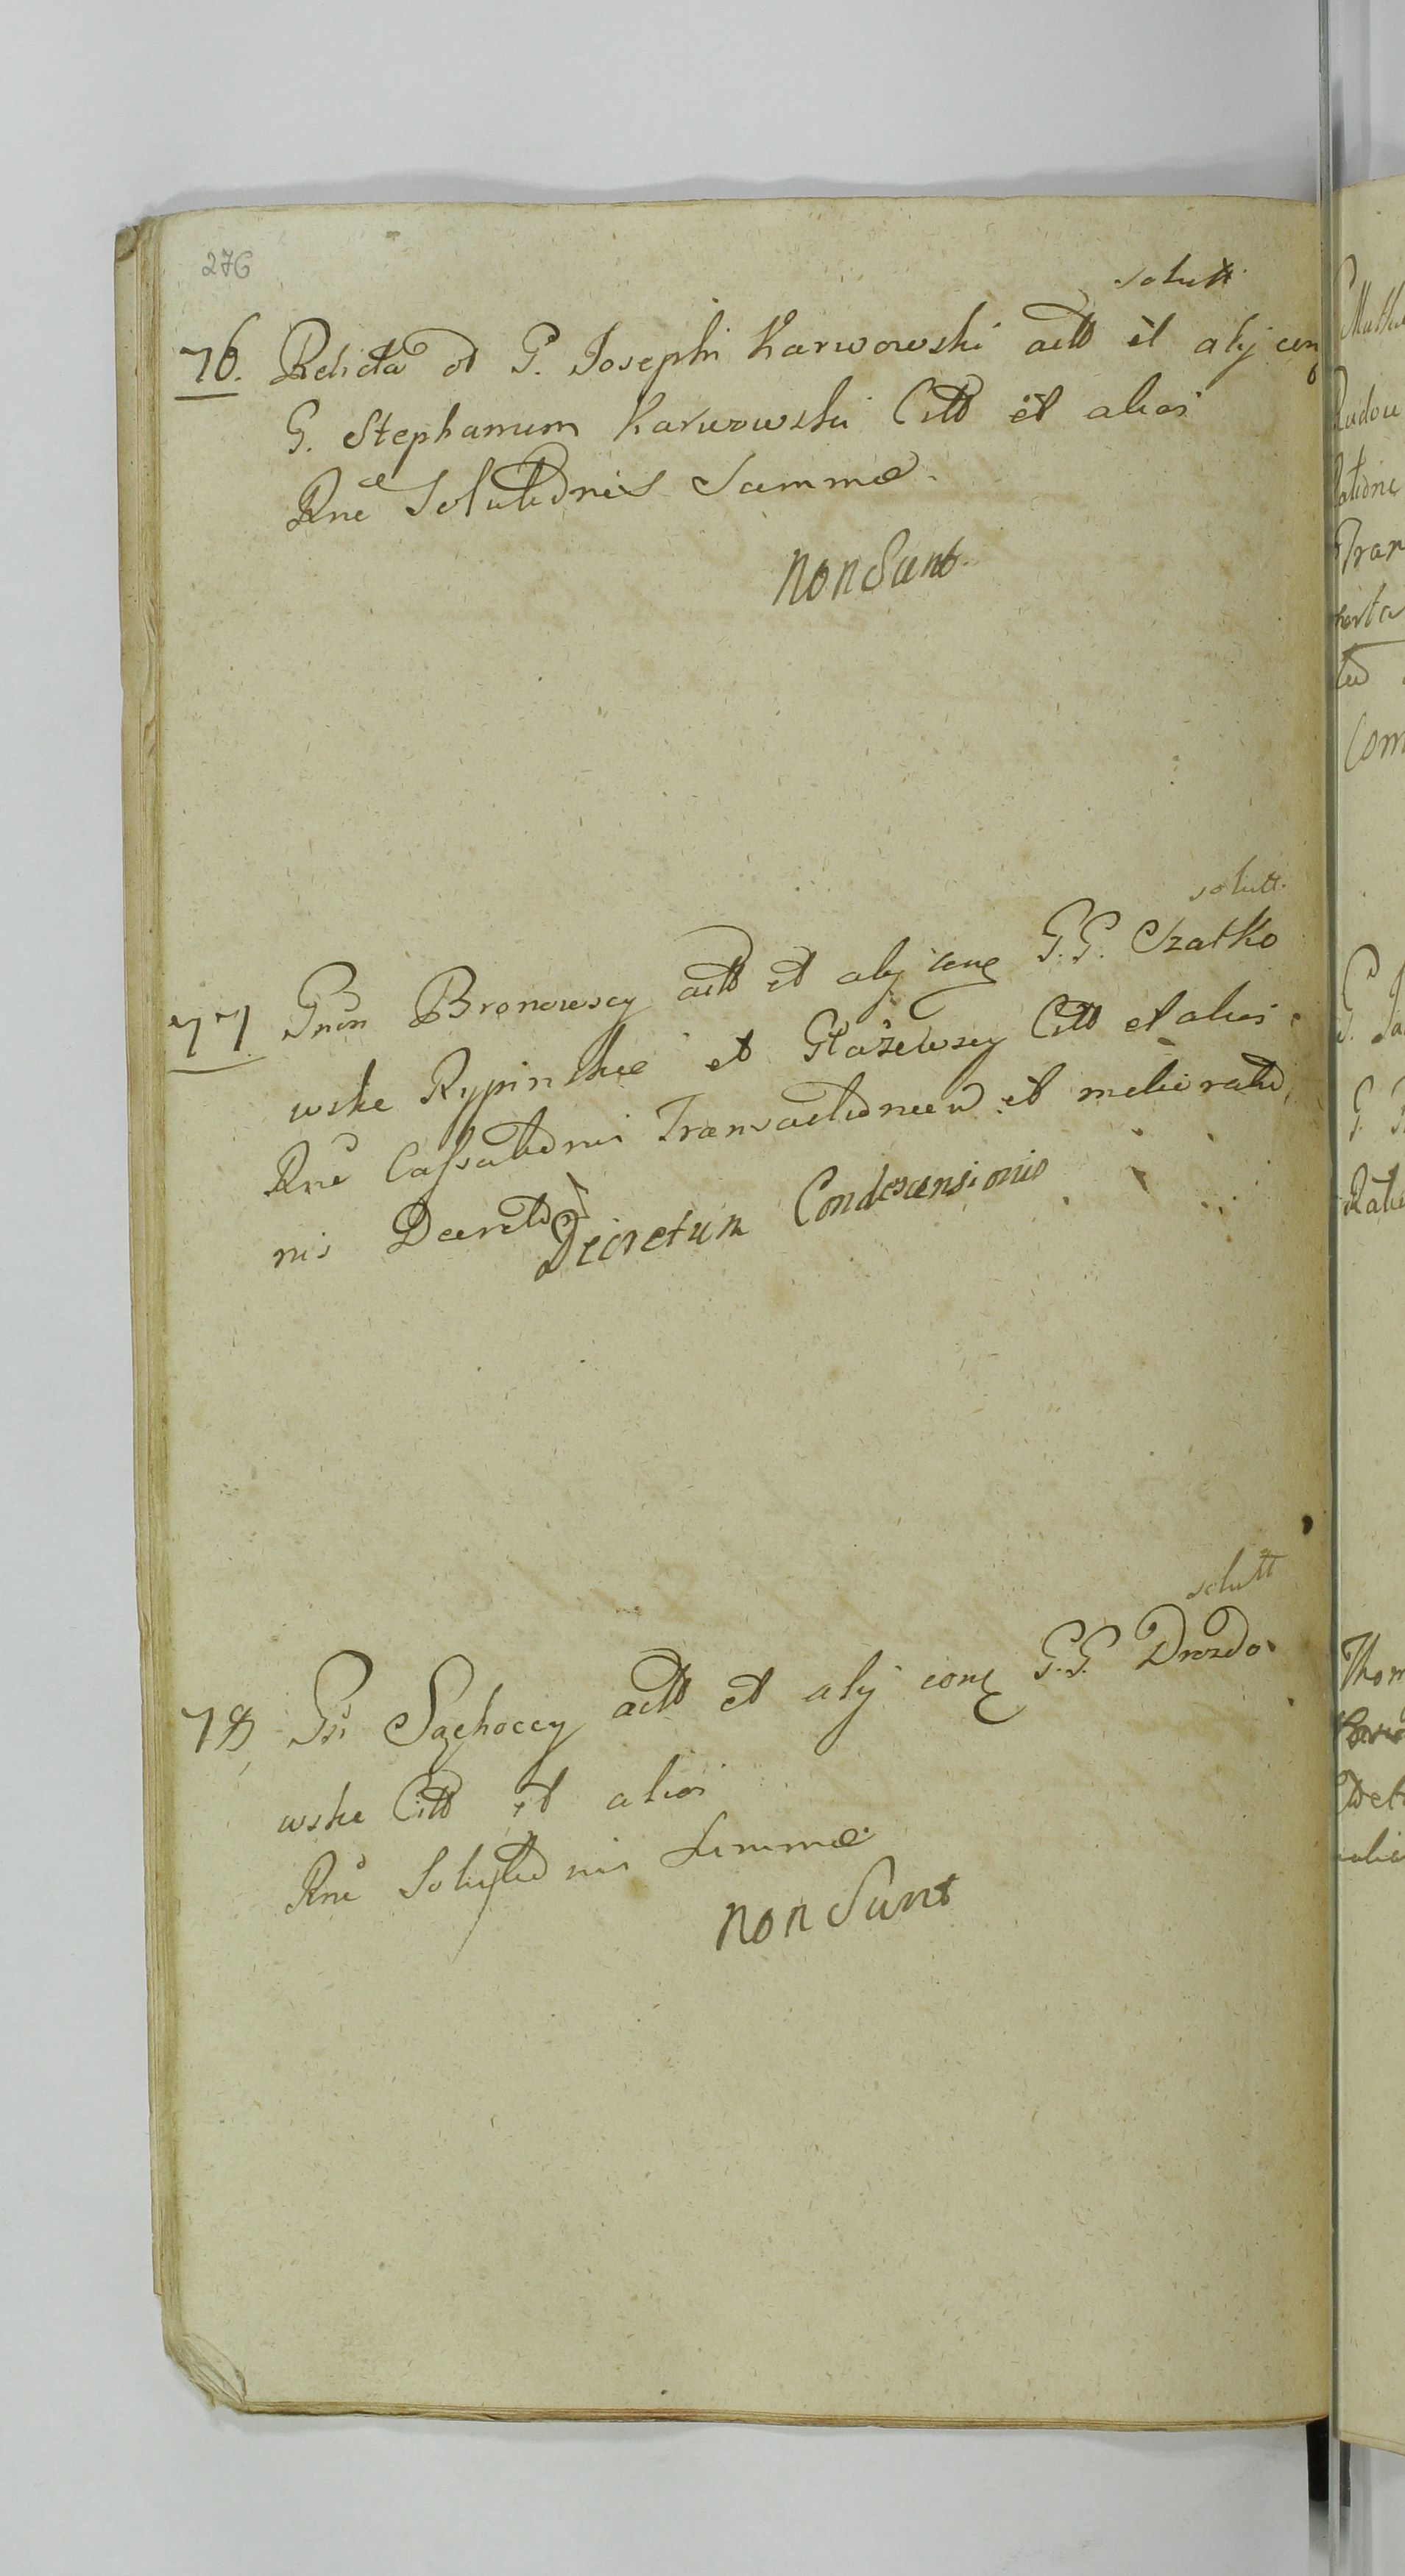 276
solutt.
76. Relicta ol G. Josephi Karwowski actt et alij con
G. Stephanum Karwowski Citt et alios
Rne Solutionis Summæ.
Non Sunt.
solutt.
77 Gnon Bronowscy actt et alij con G.G. Szatko
wskie Rypinskie et Głażewscy Citt et alios
Rne Cassationis Transactionum et melioratio
nis Decretor
Decretum Condescensionis
solutt
78 Gsi Sąchoccy actt et alij con G.G. Drozdo
wskie Citt et alios
Rne Solutionis Summæ
Non Sunt